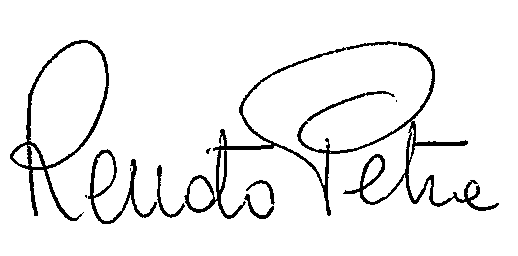 Renato Petra